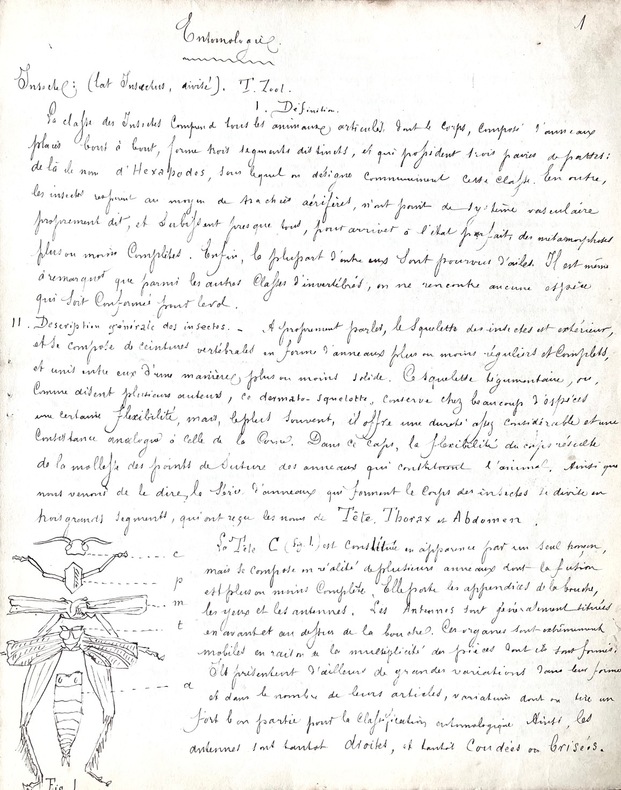 1
Entomologie.
Insecte; (lat Insectus, divisé). T. Zool.
1. Définition.
La classe des Insectes comprend tous les animaux articulés dont le corps, composé d'anneaux
placés bout à bout, forme trois segments distincts, et qui possèdent trois paires de pattes:
de là le nom d'Hexapodes, sous lequel on désigne communément cette classe. En outre,
les insectes respirent au moyen de trachées aérifères, n'ont point de système vasculaire
proprement dit, et subissent presque tous, pour arriver à l'état parfait, des métamorphoses
plus ou moins complètes. Enfin, la plupart d'entre eux sont pourvus d'ailes. Il est même
à remarquer que parmi les autres classes d'invertébrés, on ne rencontre aucune espèce
qui soit conformée pour le vol.
11. Description générale des insectes. - A proprement parler, le squelette des insectes est extérieur,
et se compose de ceintures vertébrales en forme d'anneaux plus ou moins réguliers et complets,
et unis entre eux d'une manière plus ou moins solide. Ce squelette tégumentaire, ou,
comme disent plusieurs auteurs, ce dermato-squelette, conserve chez beaucoup d'espèces
une certaine flexibilité, mais, le plus souvent, il offre une dureté assez considérable et une
consistance analogue à celle de la corne. Dans ce cas, la flexibilité du corps résulte
de la mollesse des points de suture des anneaux qui constituent l'animal. Ainsi que
nous venons de le dire, la série d'anneaux qui forment le corps des insectes se divise en
trois grands segments, qui ont reçu les noms de Tête, Thorax et Abdomen.
La Tête C (fig. 1) est constituée en apparence par un seul tronçon,
mais se compose en réalité de plusieurs anneaux dont la fusion
est plus ou moins complète. Elle porte les appendices de la bouche,
les yeux et les antennes. Les Antennes sont généralement situées
en avant et au dessus de la bouche. Ces organes sont extrêmement
mobiles en raison de la multiplicité des pièces dont ils sont formés.
Ils présentent d'ailleurs de grandes variations dans leur forme
et dans le nombre de leurs articles, variations dont on tire un
fort bon parti pour la classification entomologique. Ainsi, les
antennes sont tantôt droites, et tantôt Coudées ou Brisées.
c
p
m
t
a
Fig. 1